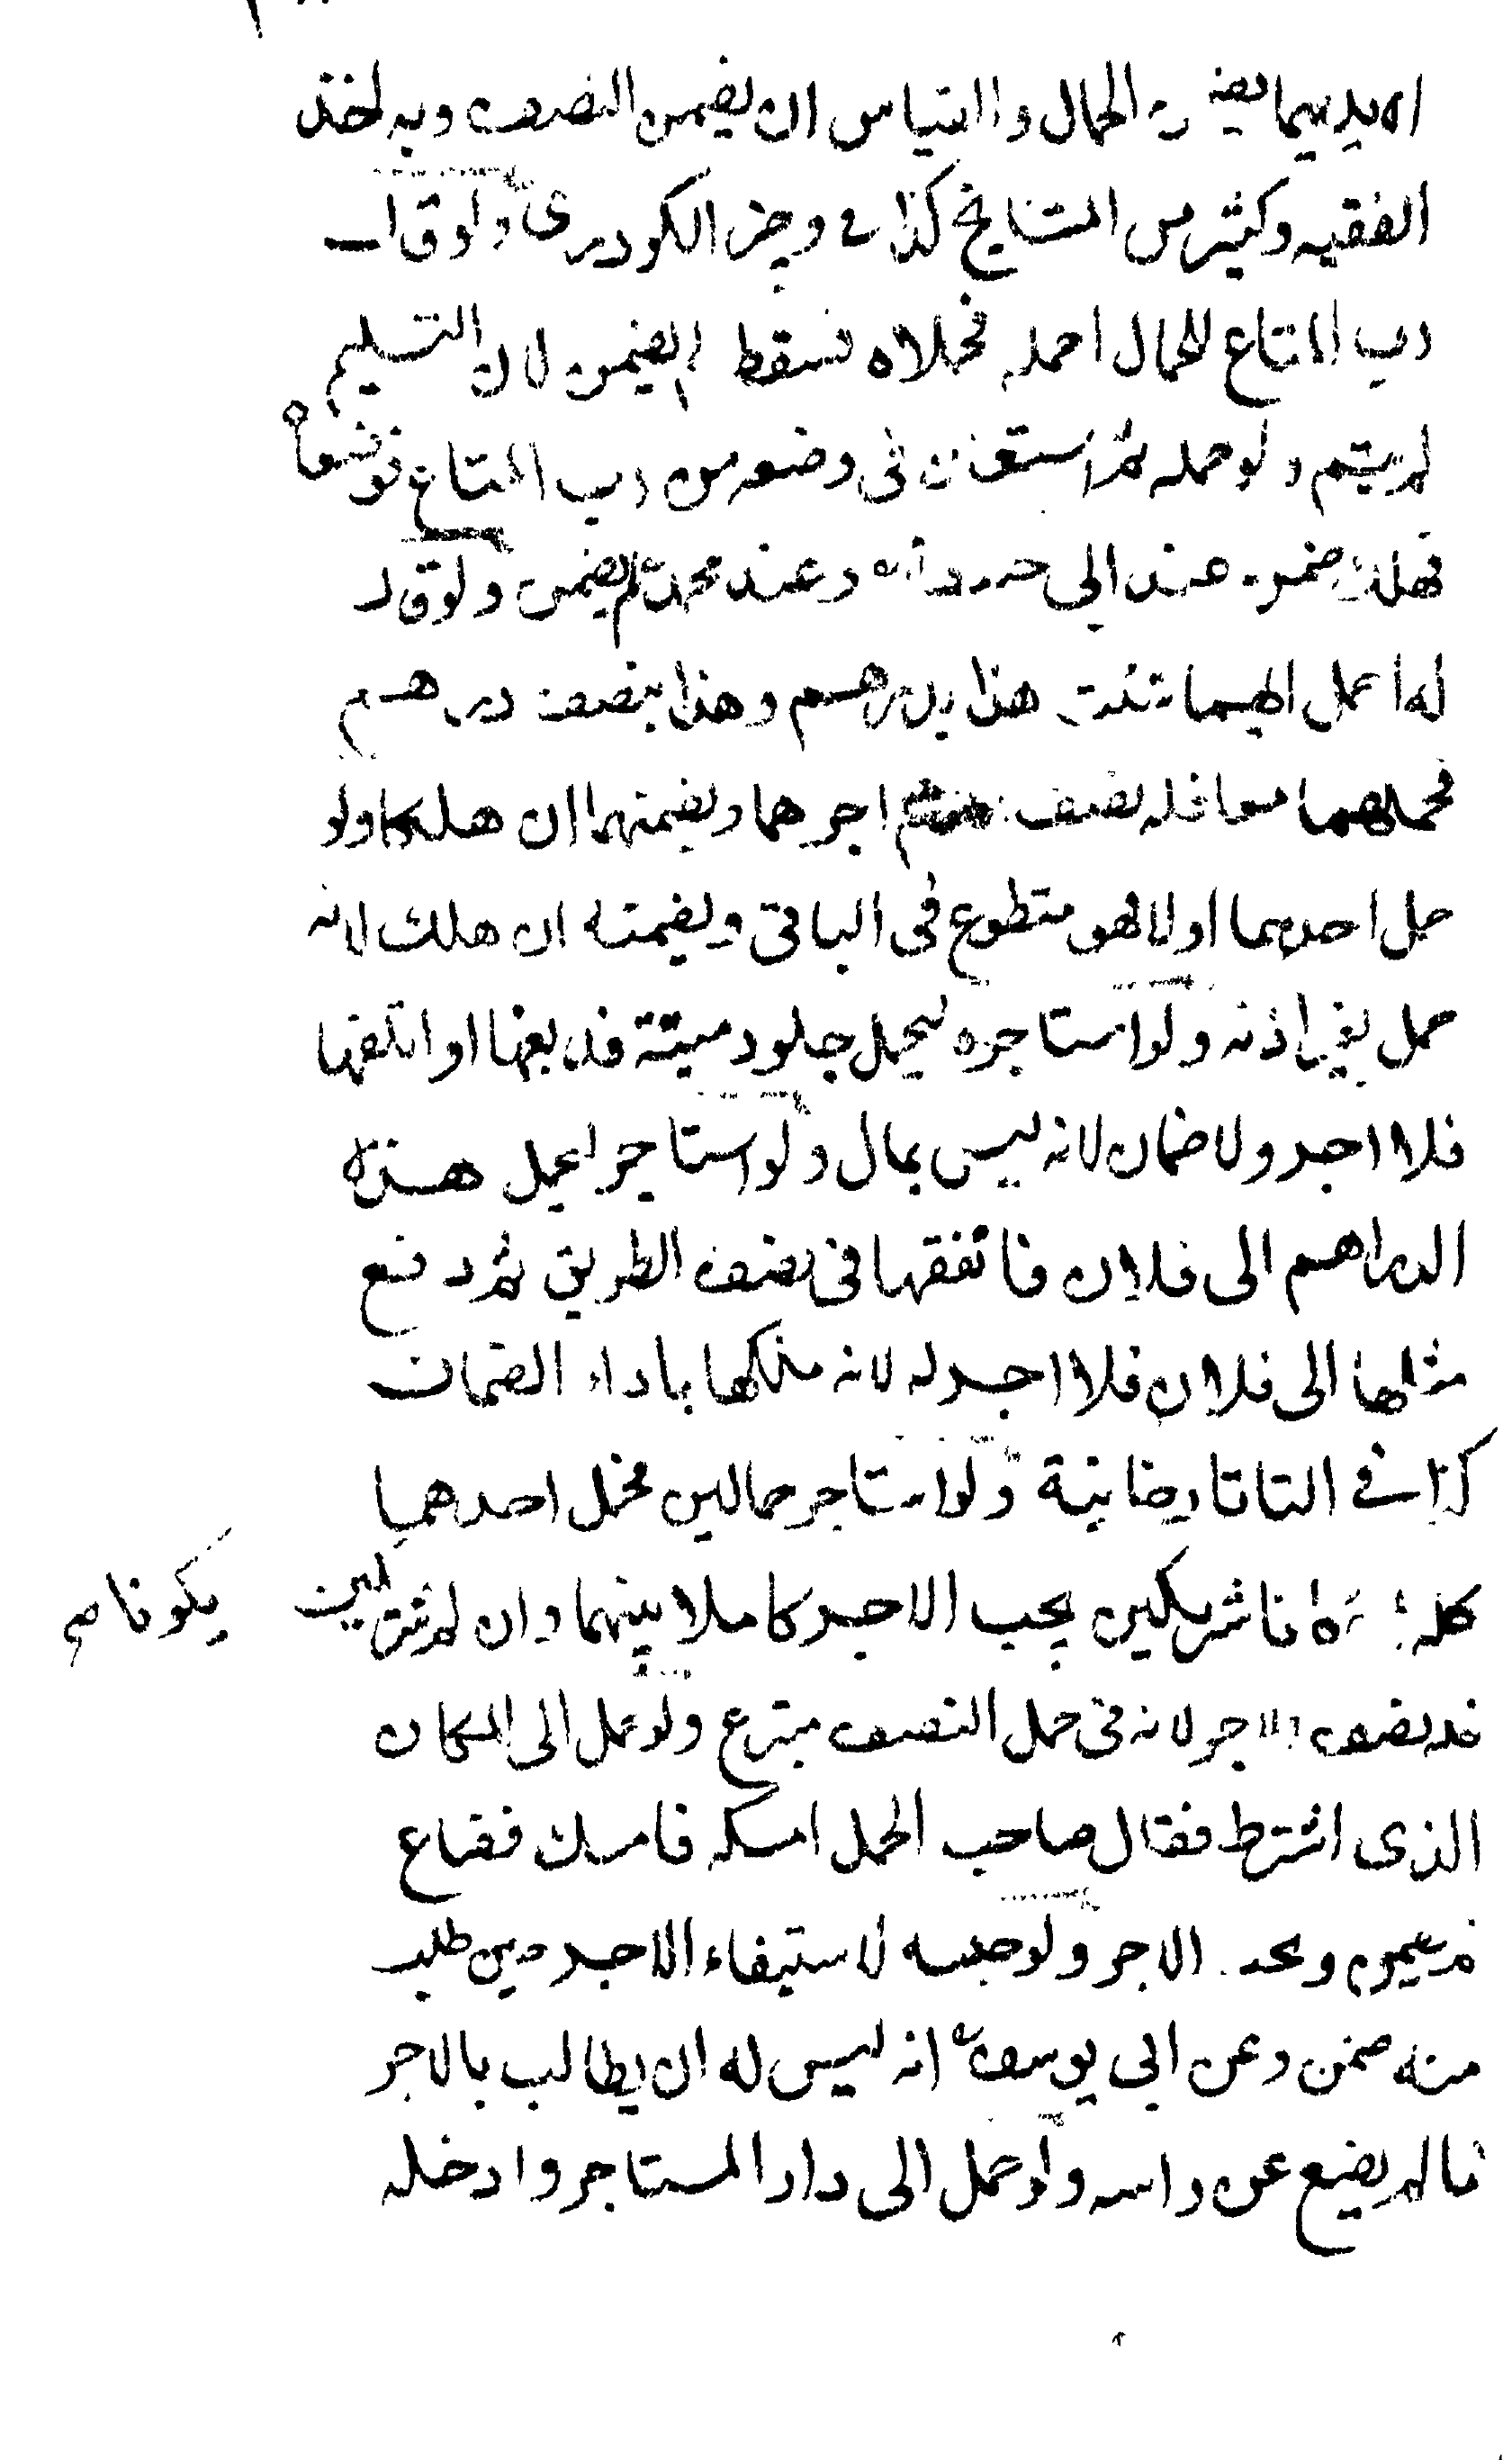 ايديهما يضمن الحمال والقياس ان يضمن النصف وبه اخذ
الفقيه وكثير من المشايخ كذا في وجيز الكردرى ولو قال
رب المتاع للحمال احمله فحملاه فسقط لم يضمن لان التسليم
لم يتم ولو حمله ثم استعان فى وضعه من رب المتاع فوضعاه
فهلك ضمن عند ابي وعند محمد لم يضمن ولو قال
له احمل ايهما شئت هذا بدرهم وهذا بنصف درهم
فحملهما معا فله نصف اجرهما ويضمنهما ان هلكا ولو
حمل احدهما اولا فهو متطوع فى الباقى ويضمنه ان هلك لانه
حمل بغير اذنه ولو استاجره ليحمل جلود ميتة فدبغها او اتلفها
فلا اجر ولا ضمان لانه ليس بمال ولو استاجر ليحمل هذه
الدراهم الى فلان فانفقها فى نصف الطريق ثم دفع
مثلها الى فلان فلا اجر له لانه ملكها باداء الضمان
كذا في التاتارخانية ولو استاجر حمالين فحمل احدهما
كله كانا شريكين يجب الاجر كاملا بينهما وان لم شريكين يكونا صح
فله نصف الاجر لانه فى حمل النصف متبرع ولو حمل الى المكان
الذى اشترط فقال صاحب الحمل امسكه فامسك فضاع
لم يضمن ويجب الاجر ولو حبسه لاستيفاء الاجر حين طلب
منه ضمن وعن ابى يوسف انه ليس له ان يطالب بالاجر
ما لم يضع عن راسه ولو حمل الى دار المستاجر وادخله